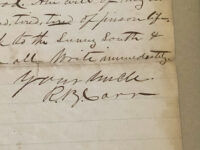 tired, tired of prison life
to the Sunny South &
all. Write immediately
Your Uncle
R. B. Carr